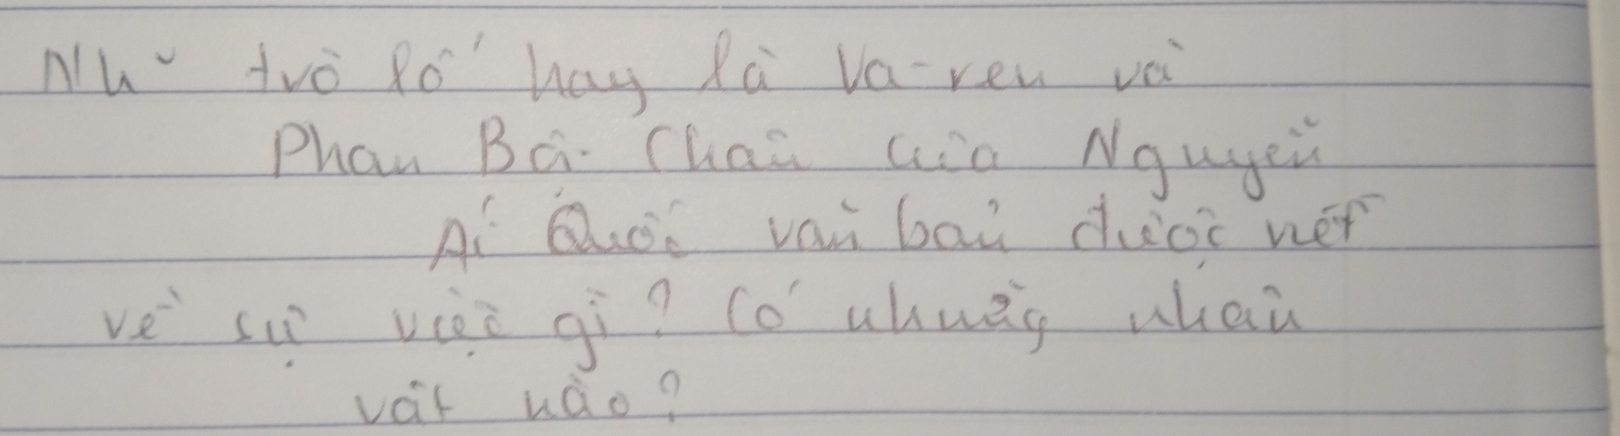 Nhữ trò lố hay là Va-ren và
Phan Bội Châu của Nguyễn
Ái Quốc văn bản được nết
về sự việc gì? Có những nhân
vật nào?